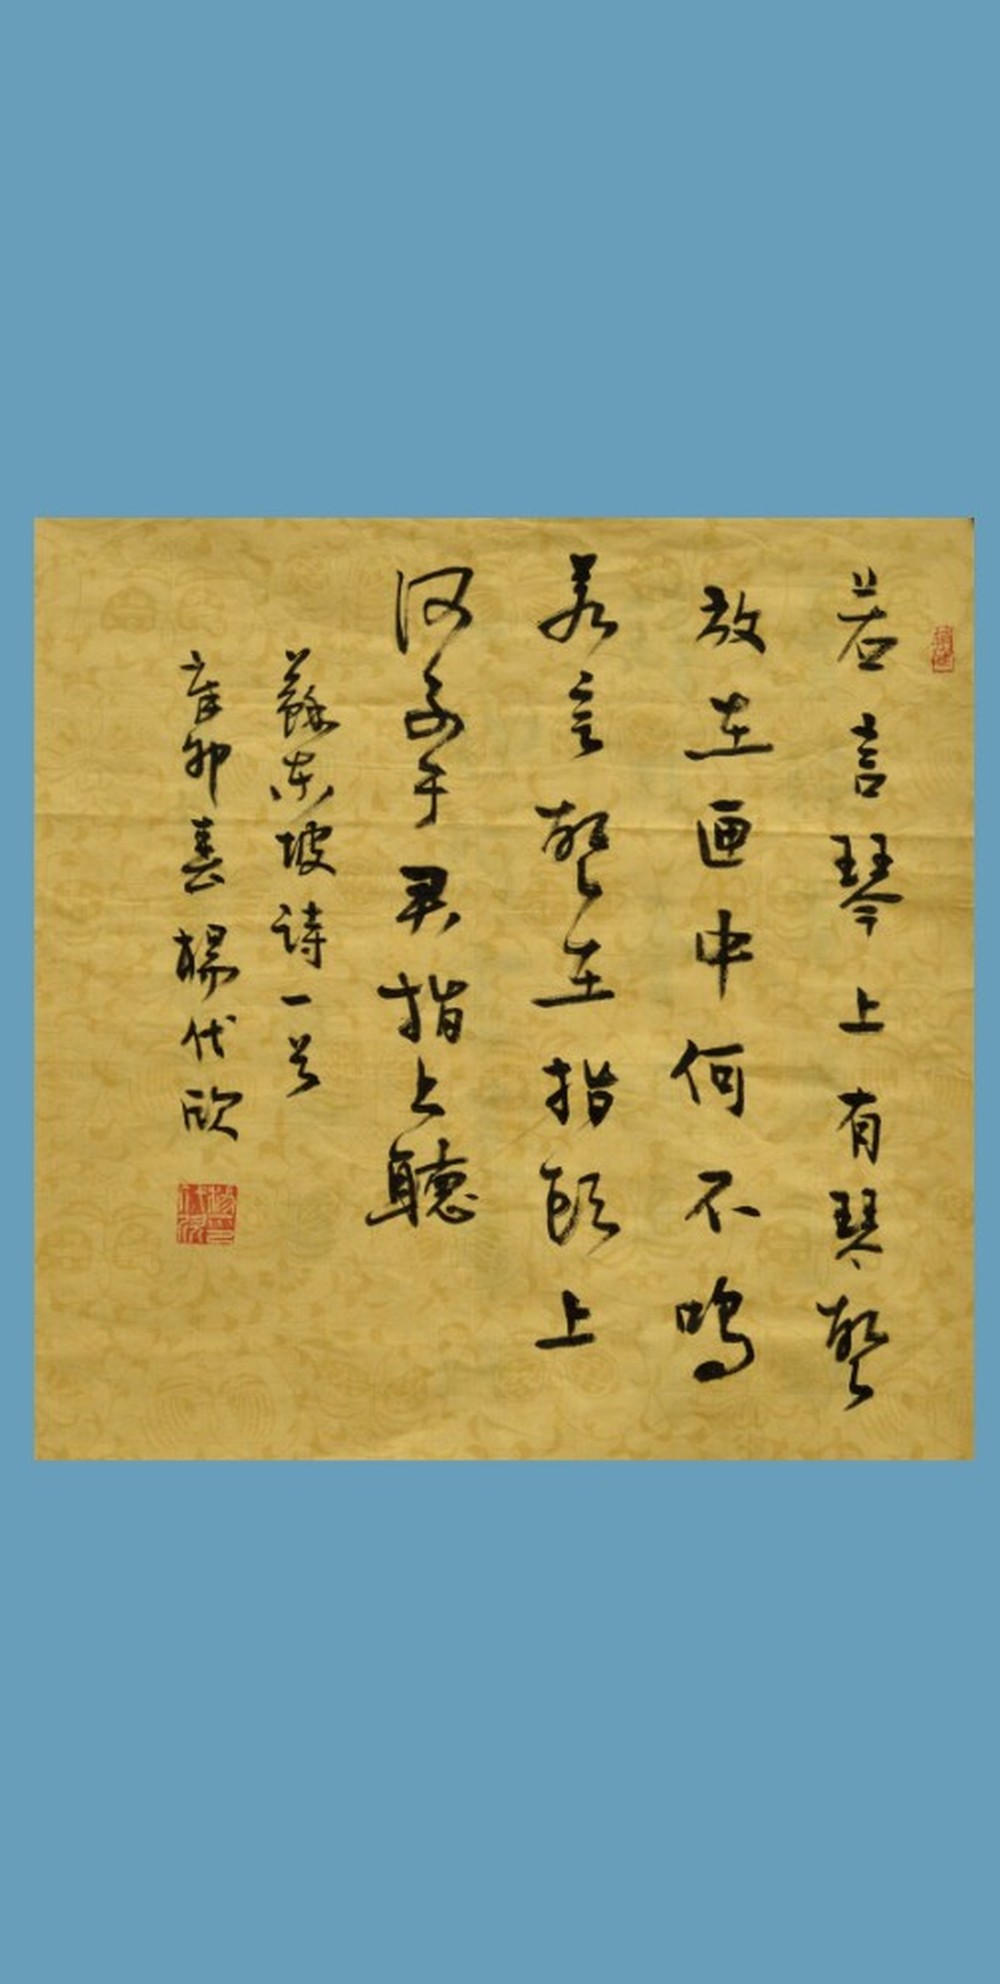 若言琴上有琴聲
放在匣中何不鳴
若言聲在指頭上
何不于君指上聽
蘇東坡詩一首
辛卯春楊代欣